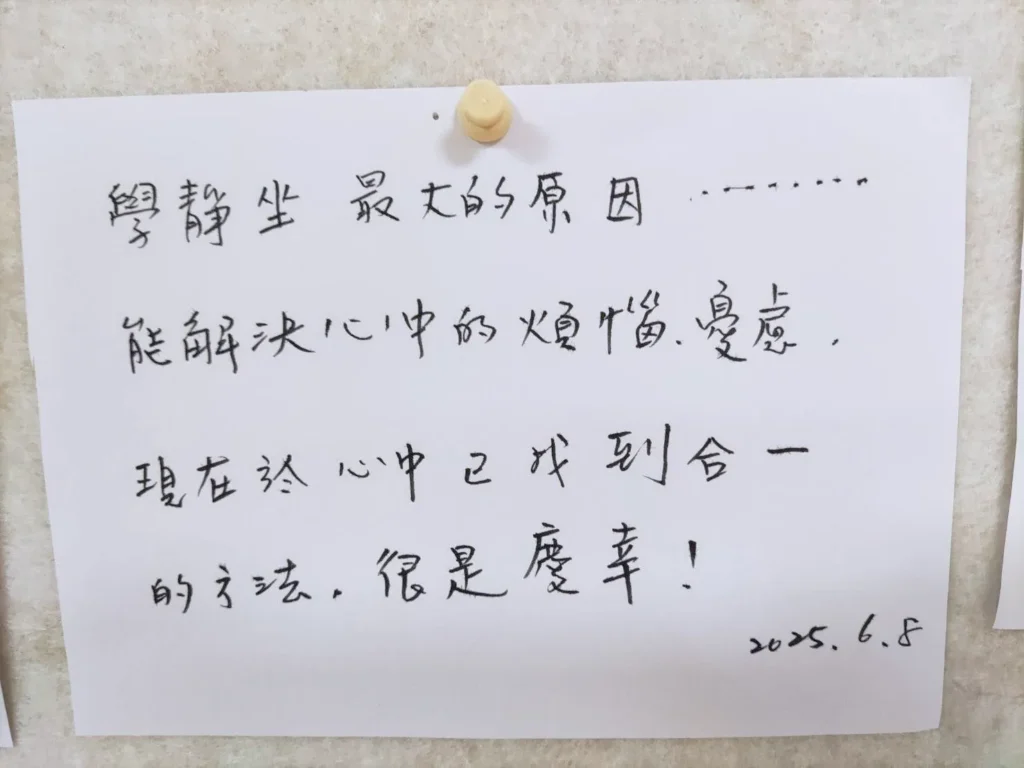 學靜坐 最大的原因 ………
能解決心中的煩惱、憂慮，
現在於心中已找到合一
的方法，很是慶幸！
2025.6.8